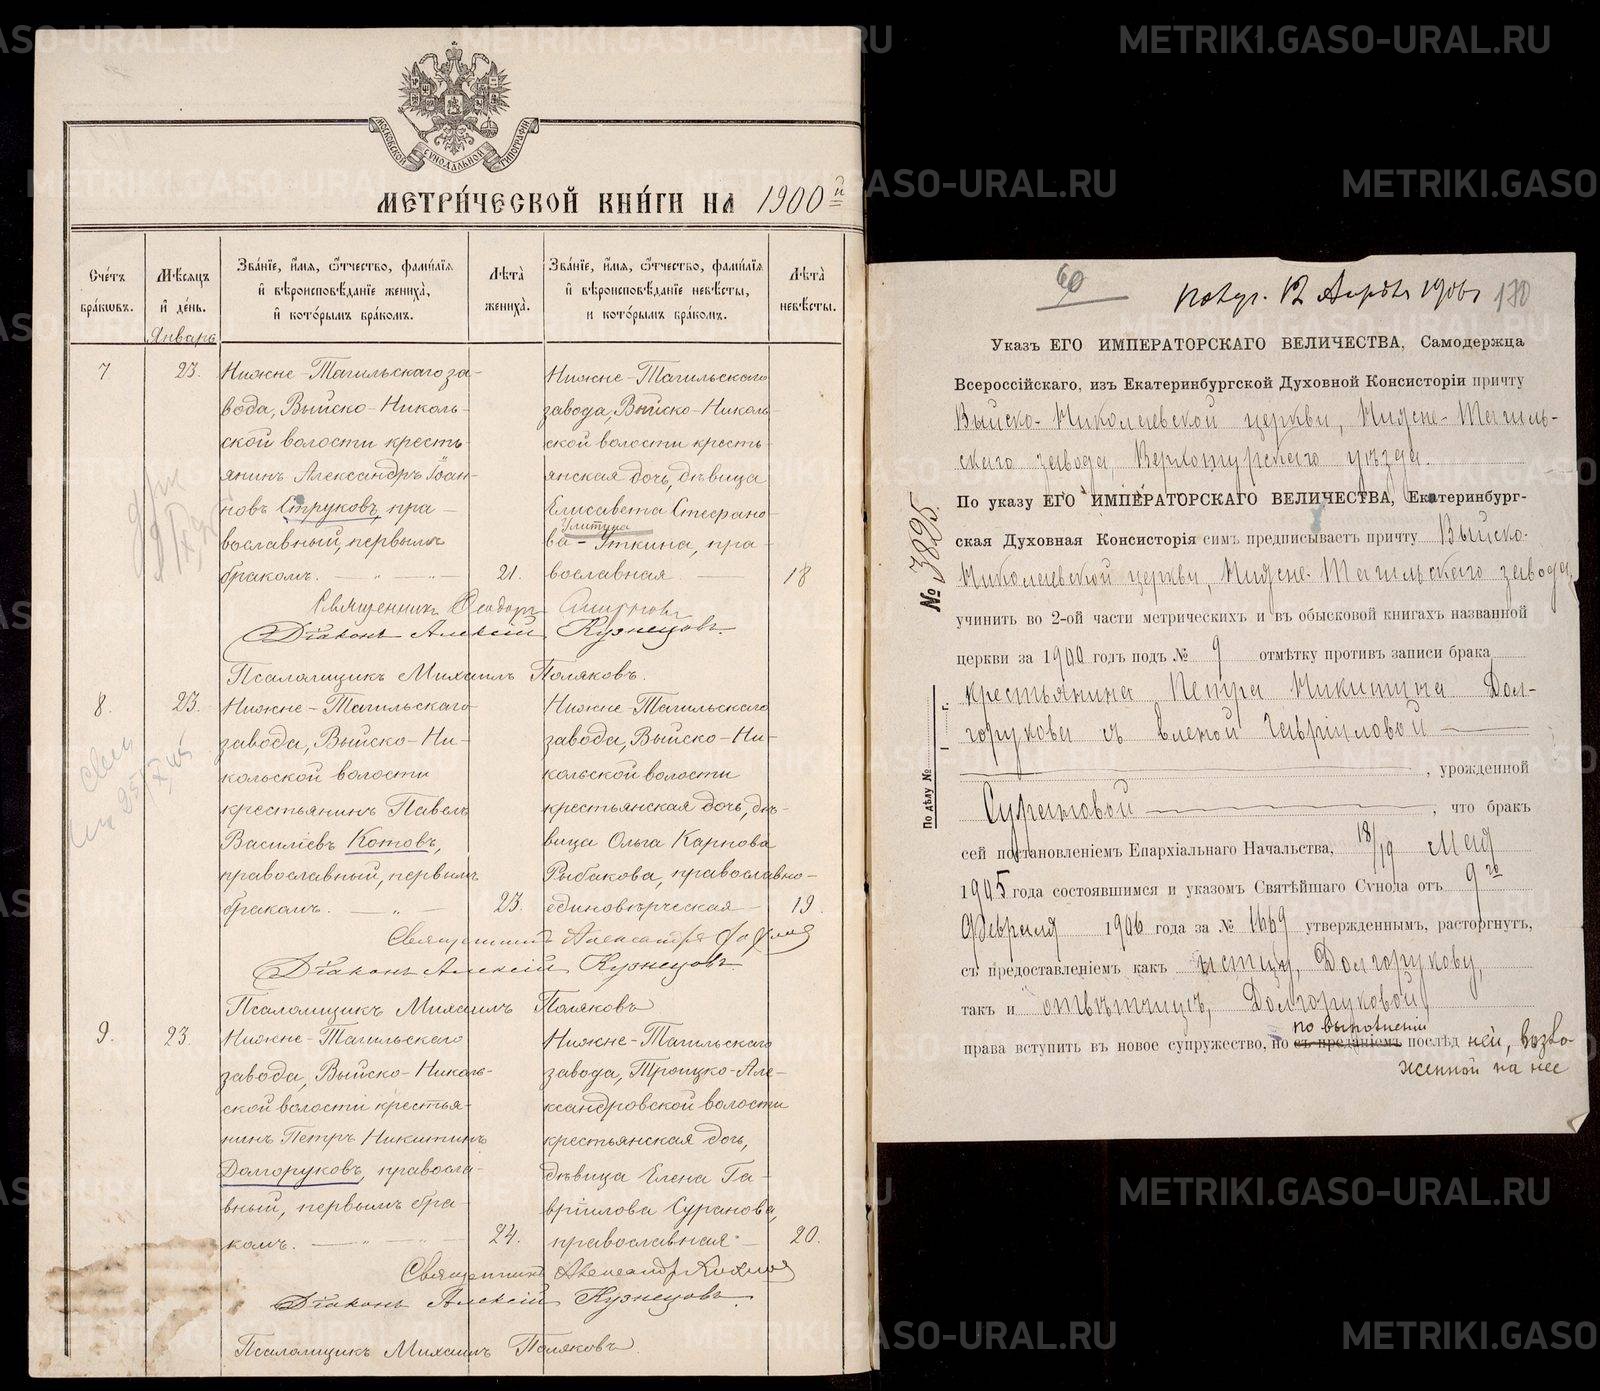 МОСКОВСКОЙ СѴНОДАЛЬНОЙ ТИПОГРАФІИ
МЕТРИ́ЧЕСКОЙ КНИ́ГИ НА 1900й
Сче́тъ бра́кѡвъ.
Мѣ́сѧцъ и҆ де́нь.
Январь
Зва́нїе, и҆́мѧ, ѻ҆́тчество, фами́лїѧ и҆ вѣроисповѣ́данїе жениха̀, и҆ кото́рымъ бра́комъ.
Лѣта̀ жениха̀.
Зва́нїе, и҆́мѧ, ѻ҆́тчество, фами́лїѧ и҆ вѣроисповѣ́данїе невѣ́сты, и кото́рымъ бра́комъ.
Лѣта̀ невѣ́сты.
7
23.
Нижне-Тагильскаго за-
вода, Выйско-Николь-
ской волости кресть-
янинъ Александръ Іоан-
новъ Струковъ, пра-
вославный, первымъ
бракомъ.
21.
Нижне-Тагильскаго
завода, Выйско-Николь-
ской волости кресть-
янская дочь, дѣвица
Елисавета Стефано-
Улитина
ва - Уткина, пра-
вославная
18
Священникъ Ѳеодоръ Смирновъ
Діаконъ Алексій Кузнецовъ.
Псаломщикъ Михаилъ Поляковъ.
8.
23.
Нижне-Тагильскаго
завода, Выйско-Ни-
кольской волости
крестьянинъ Павелъ
Василіевъ Котовъ,
православный, первымъ
бракомъ.
23.
Нижне-Тагильскаго
завода, Выйско-Ни-
кольской волости
крестьянская дочь, дѣ-
вица Ольга Карпова
Рыбакова, православно-
единовѣрческая
19.
Священникъ Александръ
Діаконъ Алексій Кузнецовъ.
Псаломщикъ Михаилъ Поляковъ
9.
23.
Нижне-Тагильскаго
завода, Выйско-Николь-
ской волости крестья-
нинъ Петръ Никитинъ
Долгоруковъ, правосла-
вный, первымъ бра-
комъ.
24.
Нижне-Тагильскаго
завода, Троицко-Але-
ксандровской волости
крестьянская дочь,
дѣвица Елена Га-
вріилова Суранова,
православная
20.
Священникъ Александръ
Діаконъ Алексій Кузнецовъ.
Псаломщикъ Михаилъ Поляковъ.
60
Получ. 12 Апрѣля 1906 г.
180
Указъ ЕГО ИМПЕРАТОРСКАГО ВЕЛИЧЕСТВА, Самодержца
Всероссійскаго, изъ Екатеринбургской Духовной Консисторіи причту
Выйско-Николаевской церкви, Нижне-Тагиль-
скаго завода, Верхотурскаго уѣзда.
По указу ЕГО ИМПЕРАТОРСКАГО ВЕЛИЧЕСТВА, Екатеринбург-
ская Духовная Консисторія симъ предписываетъ причту Выйско-
Николаевской церкви, Нижне-Тагильскаго завода,
учинить во 2-ой части метрическихъ и въ обысковой книгахъ названной
церкви за 1900 годъ подъ № 9 отмѣтку противъ записи брака
крестьянина Петра Никитина Дол-
горукова съ Еленой Гавріиловой
, урожденной
Сурановой, что бракъ
сей постановленіемъ Епархіальнаго Начальства, 18/19 Мая
1905 года состоявшимся и указомъ Святѣйшаго Сѵнода отъ 9го
Февраля 1906 года за № 1669 утвержденнымъ, расторгнутъ,
съ предоставленіемъ какъ истцу, Долгорукову,
такъ и отвѣтчицѣ, Долгоруковой,
по выполненіи
права вступить въ новое супружество, но съ преданіемъ послѣд ней, возло-
женной на нее
№ 3895.
По дѣлу №
1 г.
METRIKI.GASO-URAL.RU